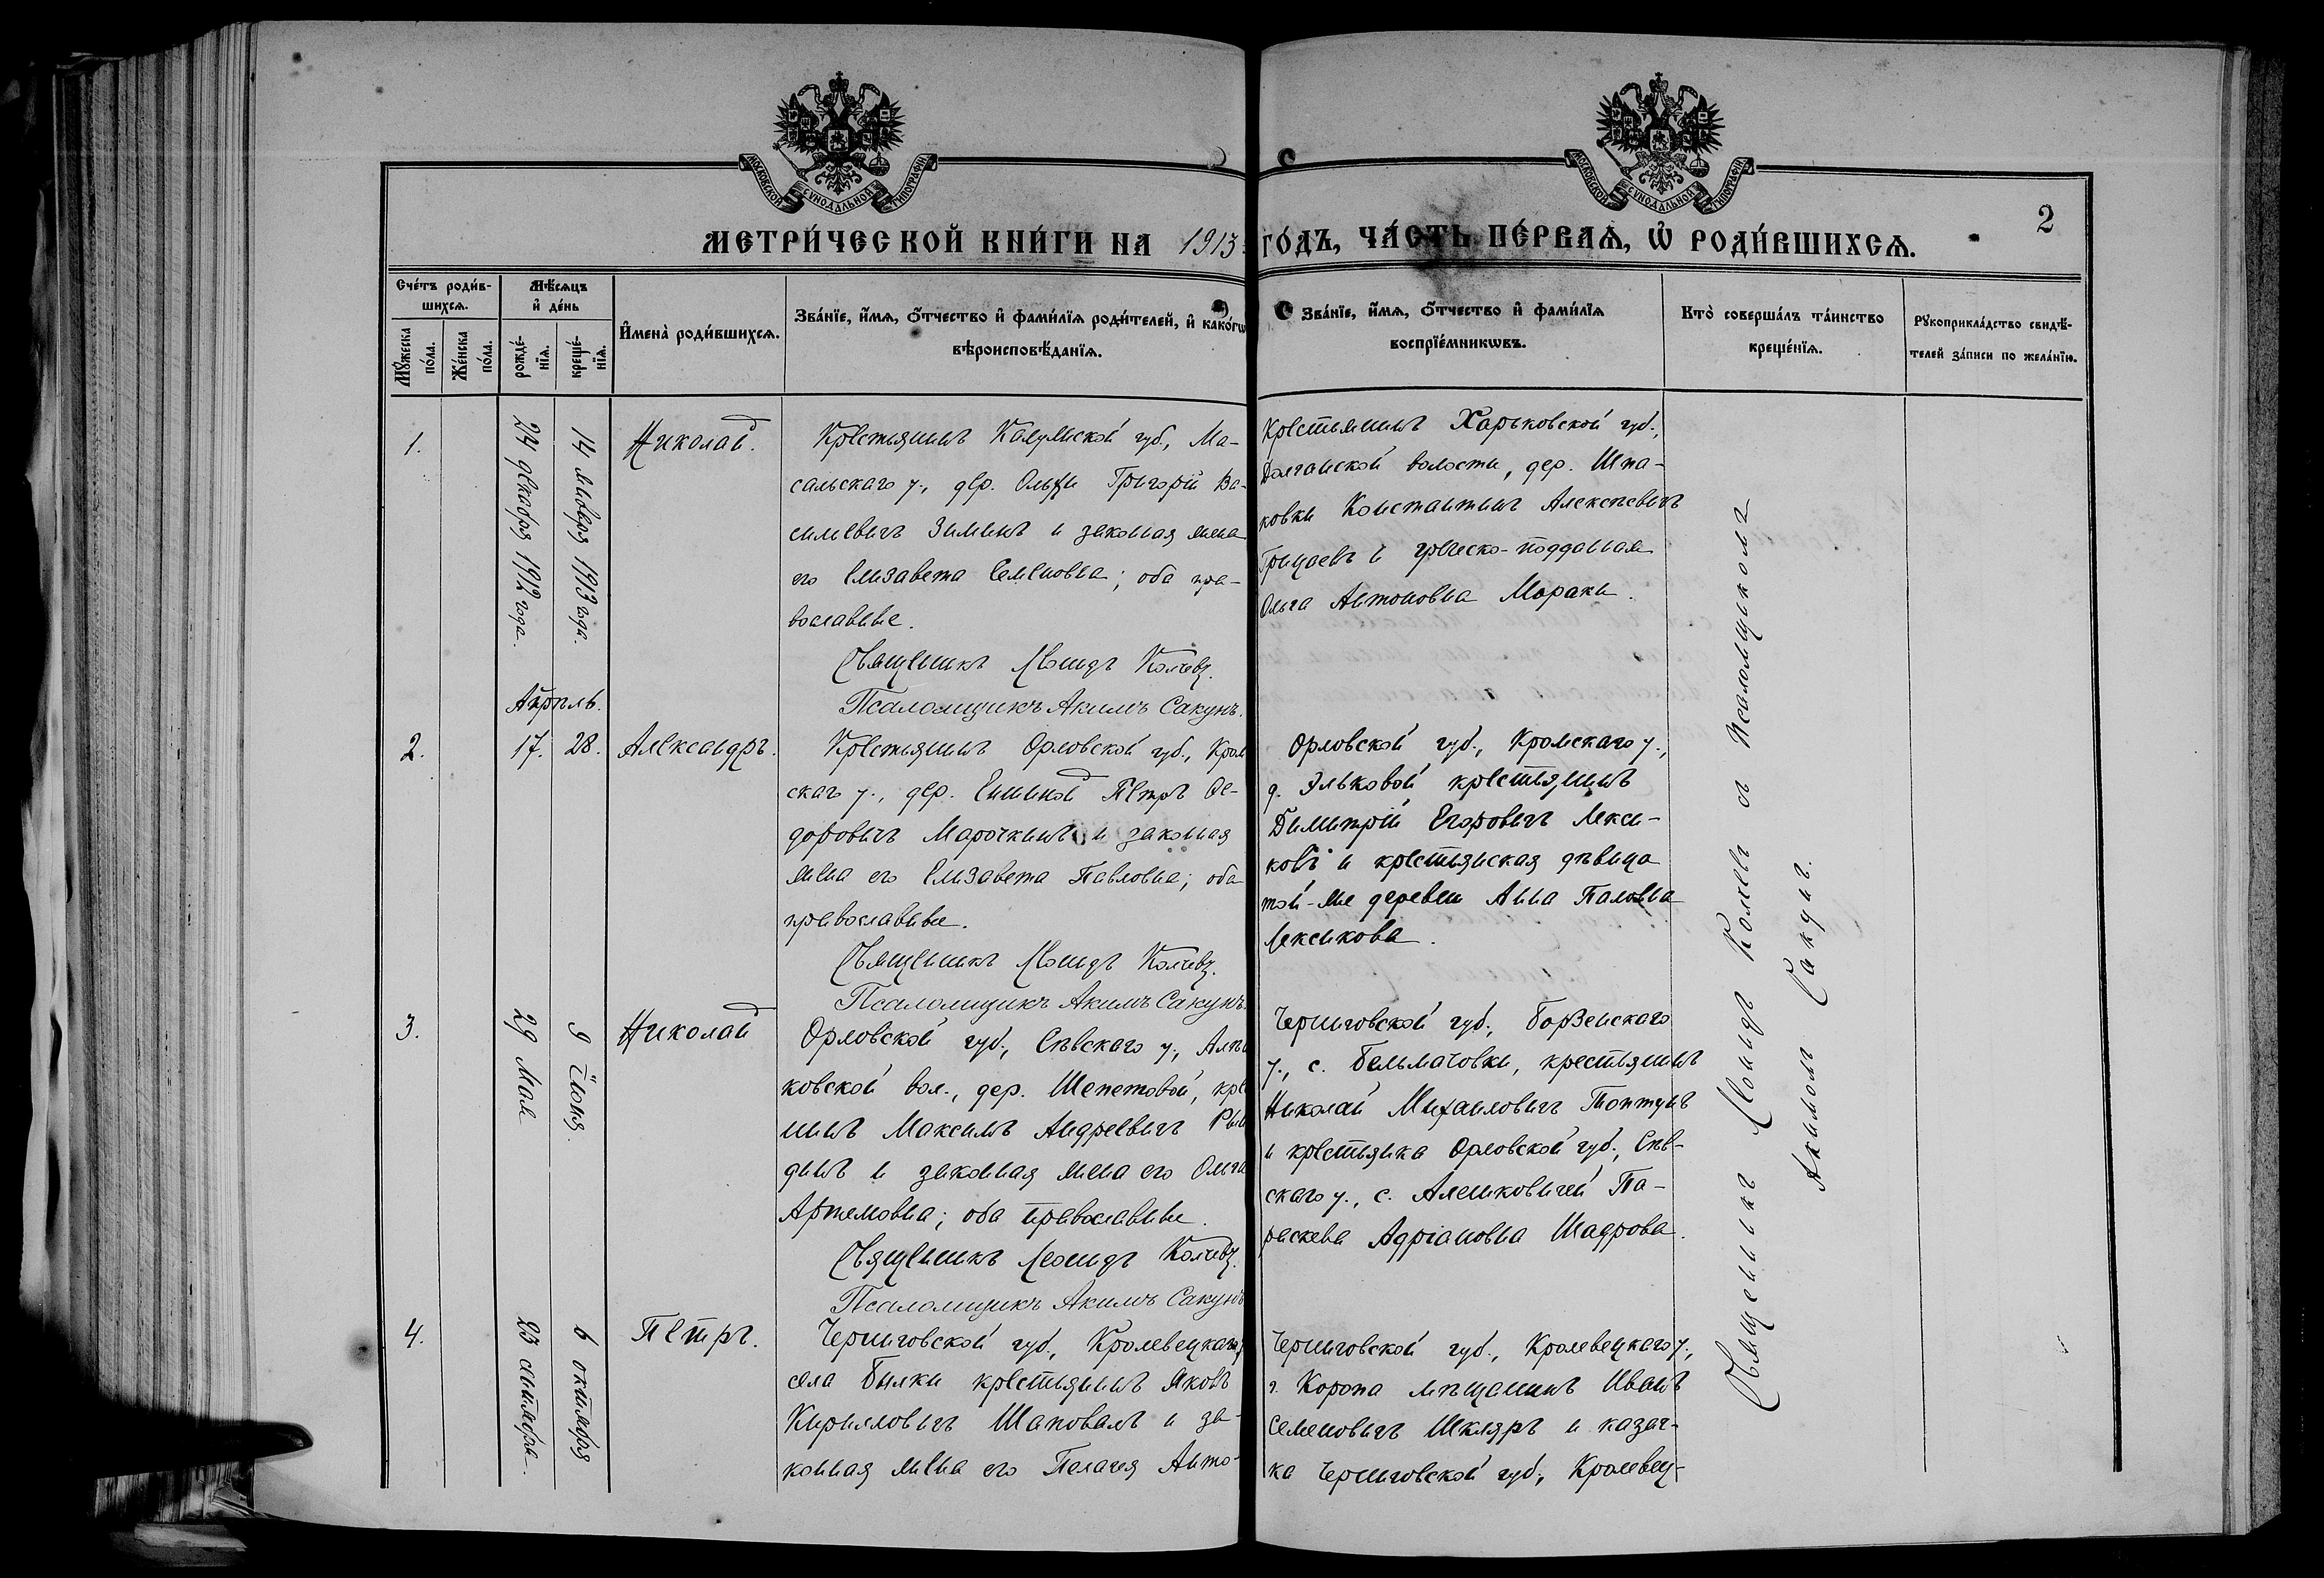 МОСКОВСКОЙ СѴНОДАЛЬНОЙ ТИПОГРАФІИ
МОСКОВСКОЙ СѴНОДАЛЬНОЙ ТИПОГРАФІИ
2
МЕТРИ́ЧЕСКОЙ КНИ́ГИ НА 1913 ГО́ДЪ, ЧА́СТЬ ПЕ́РВАѦ, Ѡ҆ РОДИ́ВШИХСѦ.
Сче́тъ роди́в-
шихсѧ.
Мꙋ́жеска по́ла.
Же́нска по́ла.
Мѣ́сѧцъ
и҆ де́нь
рожде́-
нїѧ.
креще́-
нїѧ.
И҆мена̀ роди́вшихсѧ.
Зва́нїе, и҆́мѧ, ѻ҆́тчество и҆ фами́лїѧ роди́телей, и҆ како́гѡ
вѣроисповѣ́данїѧ.
Зва́нїе, и҆́мѧ, ѻ҆́тчество и҆ фами́лїѧ
воспрїе́мникѡвъ.
Кто̀ соверша́лъ та́инство
креще́нїѧ.
Рꙋкоприкла́дство свидѣ́-
телей за́писи по жела́нїю.
1.
24 декабря 1912 года.
14 января 1913 года.
Николай.
Крестьянинъ Калужской губ., Ма-
сальскаго у., дер. Григорій Ва-
сильевичъ Зиминъ и законная жена
его Елизавета Семеновна; оба пра-
вославные.
Священникъ Леонидъ Колчевъ.
Псаломщикъ Акимъ Сакунъ.
Крестьянинъ Харьковской губ.,
волости, дер. Шпа-
ковки Константинъ Алексѣевичъ
Грицаевъ и греческо-подданная
Ольга Антоновна Мораки.
Апрѣль.
2.
17.
28.
Александръ.
Крестьянинъ Орловской губ., Кром
скаго у., дер. Петръ Ѳе-
доровичъ Марочкинъ и законная
жена его Елизавета Павловна; оба
православные.
Священникъ Леонидъ Колчевъ.
Псаломщикъ Акимъ Сакунъ.
Орловской губ., Кромскаго у.,
д. Эльковой крестьянинъ
Димитрій Егоровичъ Лекси-
ковъ и крестьянская дѣвица
той-же деревни Анна Паловна
Лексикова.
3.
29 мая
9 Іюня.
Николай
Орловской губ., Сѣвскаго у., Алеш
ковской вол., дер. Шепетовой, кре
нинъ Максимъ Андреевичъ Рын
динъ и законная жена его Ольга
Артемовна; оба православные.
Священникъ Леонидъ Колчевъ.
Псаломщикъ Акимъ Сакунъ
Черниговской губ., Борзенскаго
у., с. Бельмачовки, крестьянинъ
Николай Михаиловичъ Топтунъ
и крестьянка Орловской губ., Сѣв-
скаго у., с. Алешковичей Па-
раскева Адріановна Шадрова.
4.
23 сентября.
6 октября
Петръ.
Черниговской губ., Кролевецкаго у
села Билки крестьянинъ Яковъ
Кириловичъ Шаповалъ и за-
конная жена его Пелагея Анто-
Черниговской губ., Кролевецкаго у.,
г. Коропа мѣщанинъ Иванъ
Семеновичъ Шкляръ и казач-
ка Черниговской губ., Кролевец-
Священникъ Леонидъ Колчевъ съ Псаломщикомъ
Акимомъ Сакунъ.